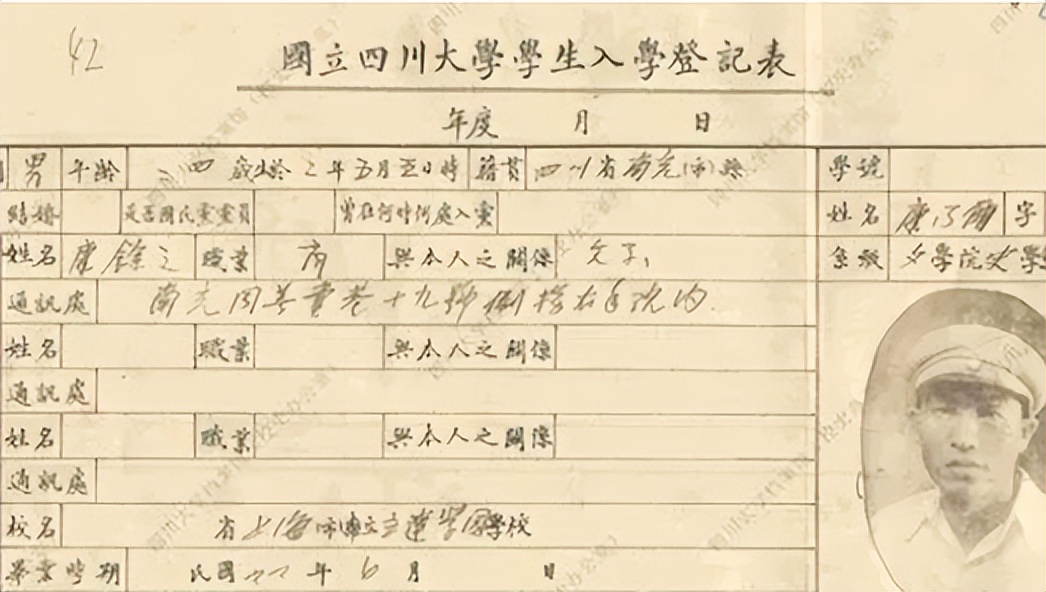 42
國立四川大學學生入學登記表
年度 月 日
男 年齡 二四 歲 生於 年五月五日時 籍貫 四川省南充(市)縣 學號
結婚 是否國民黨黨員 曾在何時何處入黨 姓名 康乃爾 字
姓名 康餘之 職業 商 與本人之關係 父子 系級 文學院史學
通訊處 南充 巷十九號 內
姓名 職業 與本人之關係
通訊處
姓名 職業 與本人之關係
通訊處
校名 省上海市縣立立達學園學校
畢業時期 民國 年6月 日